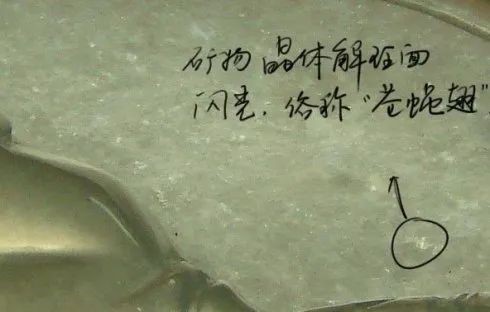 矿物晶体解理面
闪光，俗称“苍蝇翅”